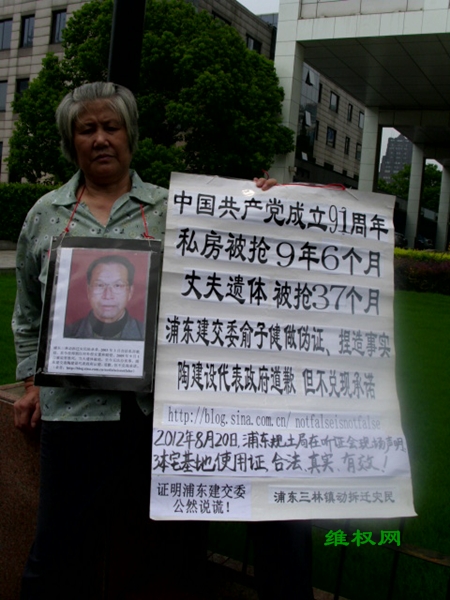 中国共产党成立91周年
私房被抢9年6个月
丈夫遗体被抢37个月
浦东建交委俞子健做伪证、捏造事实
陶建设代表政府道歉 但不兑现承诺
http://blog.sina.com.cn/notfalseisnotfalse
2012年8月20日,浦东规土局在听证会现场声明,
本宅基地使用证,合法、真实、有效!
证明浦东建交委
公然说谎!
浦东三林镇动拆迁灾民
维权网